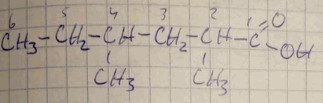 6 5 4 3 2 1 O
CH₃-CH₂-CH-CH₂-CH-C
OH
CH₃ CH₃